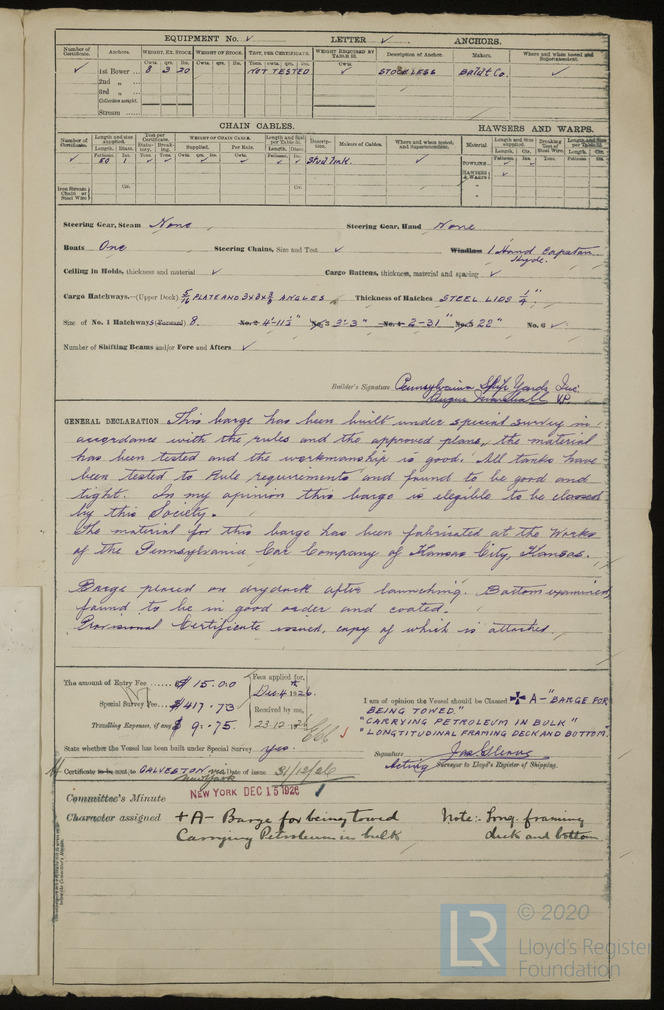 EQUIPMENT No. ✓ LETTER ✓ ANCHORS.
Number of Certificate. Anchors. WEIGHT, EX. STOCK. WEIGHT OF STOCK. TEST, PER CERTIFICATE. WEIGHT REQUIRED BY TABLE Description of Anchor. Makers. Where and when tested and Superintendent.
Cwts. qrs. lbs. Cwts. qrs. lbs. Tons. cwts. qrs. lbs. Cwts.
✓ 1st Bower ... 8 3 20 NOT TESTED ✓ STOCKLESS Baldt Co. ✓
2nd „ ...
3rd „ ...
Collective weight.
Stream
CHAIN CABLES. HAWSERS AND WARPS.
Number of Certificate. Length and size supplied. Test per Certificate. WEIGHT OF CHAIN CABLE. Length and size per Table Description. Makers of Cables. Where and when tested, and Superintendent. Material Length and size supplied. Breaking Test of Steel Wire. Length and size per Table
Length. Diam. Statutory. Breaking. Supplied. Per Rule. Length. Diam. Length. Cir. Length. Cir.
Fathoms. Ins. Tons. Tons. Cwts. qrs. lbs. Cwts. Fathoms. Ins. Fathoms. Ins. Tons. Fathoms. Ins.
✓ 50 1 ✓ ✓ ✓ ✓ ✓ ✓ ✓ Stud link ✓ TOWLINE
HAWSERS & WARPS
Iron Stream Chain or Steel Wire Cir. Cir.
Steering Gear, Steam None Steering Gear, Hand None
Boats One Steering Chains, Size and Test ✓ Windlass 1 Hand Capstan
Hyde.
Ceiling in Holds, thickness and material ✓ Cargo Battens, thickness, material and spacing ✓
Cargo Hatchways.—(Upper Deck) 5/16 PLATE AND 3x3x3/8 ANGLES Thickness of Hatches STEEL LIDS 1/4"
Size of No. 1 Hatchways (Forward) 8. No. 2 4'-11½" No. 3 3'-3" No. 4 2-31" No. 5 22" No. 6 ✓
Number of Shifting Beams and/or Fore and Afters ✓
Builder's Signature Pennsylvania Ship Yards Inc.
V.P.
GENERAL DECLARATION This barge has been built under special survey in
accordance with the rules and the approved plans, the material
has been tested and the workmanship is good. All tanks have
been tested to Rule requirements and found to be good and
tight. In my opinion this barge is elegible to be classed
by this Society.
The material for this barge has been fabricated at the Works
of the Pennsylvania Car Company of Kansas City, Kansas.
Barge placed on drydock after launching. Bottom examined,
found to be in good order and coated.
Provisional Certificate issued, copy of which is attached.
The amount of Entry Fee ...... $ 15.00 Fees applied for,
Dec. 4th 1926.
Special Survey Fee.... $ 417.73 Received by me,
Travelling Expenses, if any $ 9.75. 23-12-1926
I am of opinion the Vessel should be Classed ✠ A - "BARGE FOR
BEING TOWED."
"CARRYING PETROLEUM IN BULK"
"LONGTITUDINAL FRAMING DECK AND BOTTOM."
State whether the Vessel has been built under Special Survey yes.
Signature
Acting Surveyor to Lloyd's Register of Shipping.
Certificate to be sent to GALVESTON via New York Date of issue 31/12/26
Committee's Minute NEW YORK DEC 15 1926
Character assigned + A - Barge for being towed Note:- Long. framing
Carrying Petroleum in bulk deck and bottom
LR © 2020
Lloyd's Register
Foundation